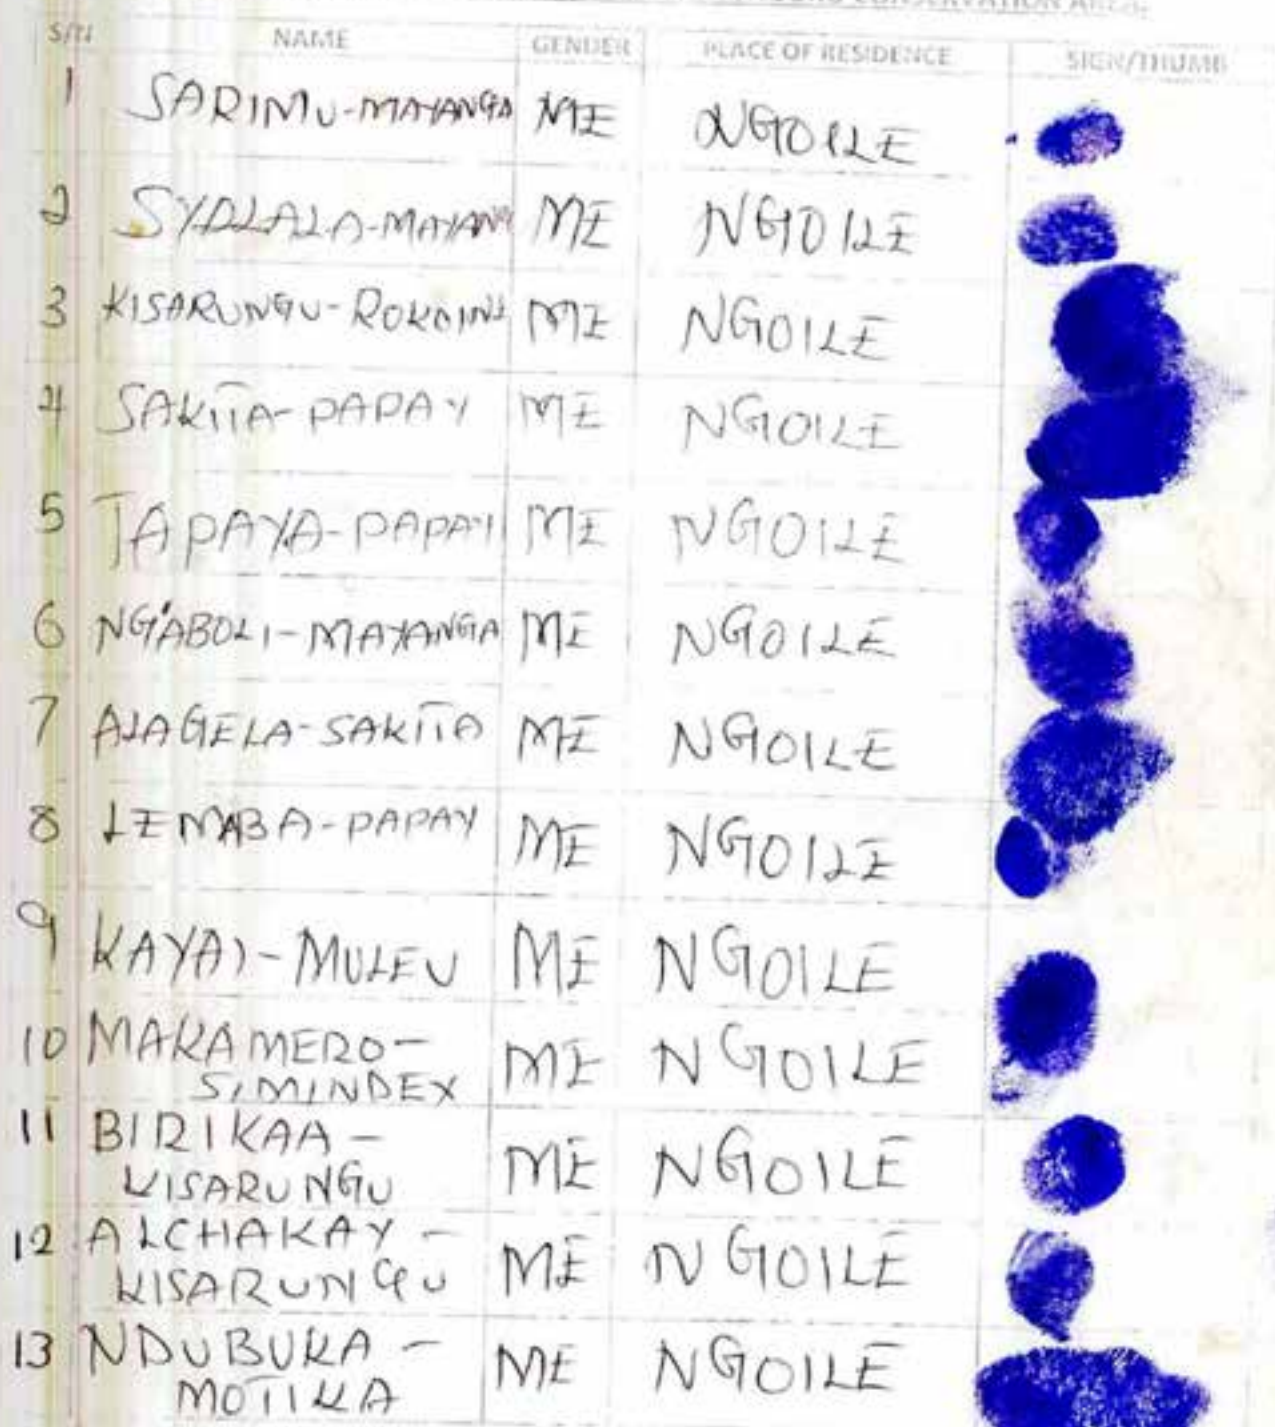 CONSERVATION AREA.
S/N NAME GENDER PLACE OF RESIDENCE SIGN/THUMB
1 SARIMU-MAYANGA ME NGOILE
2 SYALALA-MAYANG ME NGOILE
3 KISARUNGU-ROKOINE ME NGOILE
4 SAKITA-PAPAY ME NGOILE
5 TAPAYA-PAPAY ME NGOILE
6 NG'ABOLI-MAYANGA ME NGOILE
7 ALAGELA-SAKITA ME NGOILE
8 LEMABA-PAPAY ME NGOILE
9 KAYAI-MULEU ME NGOILE
10 MAKAMERO-
SIMINDEX ME NGOILE
11 BIRIKAA-
KISARUNGU ME NGOILE
12 ALCHAKAY-
KISARUNGU ME NGOILE
13 NDUBUKA-
MOTIKA ME NGOILE